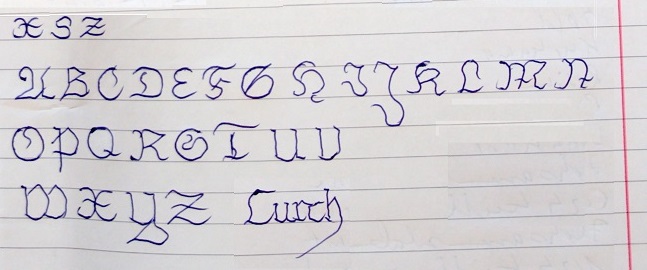 X S Z
A B C D E F G H I J K L M N
O P Q R S T U V
W X Y Z Lurch